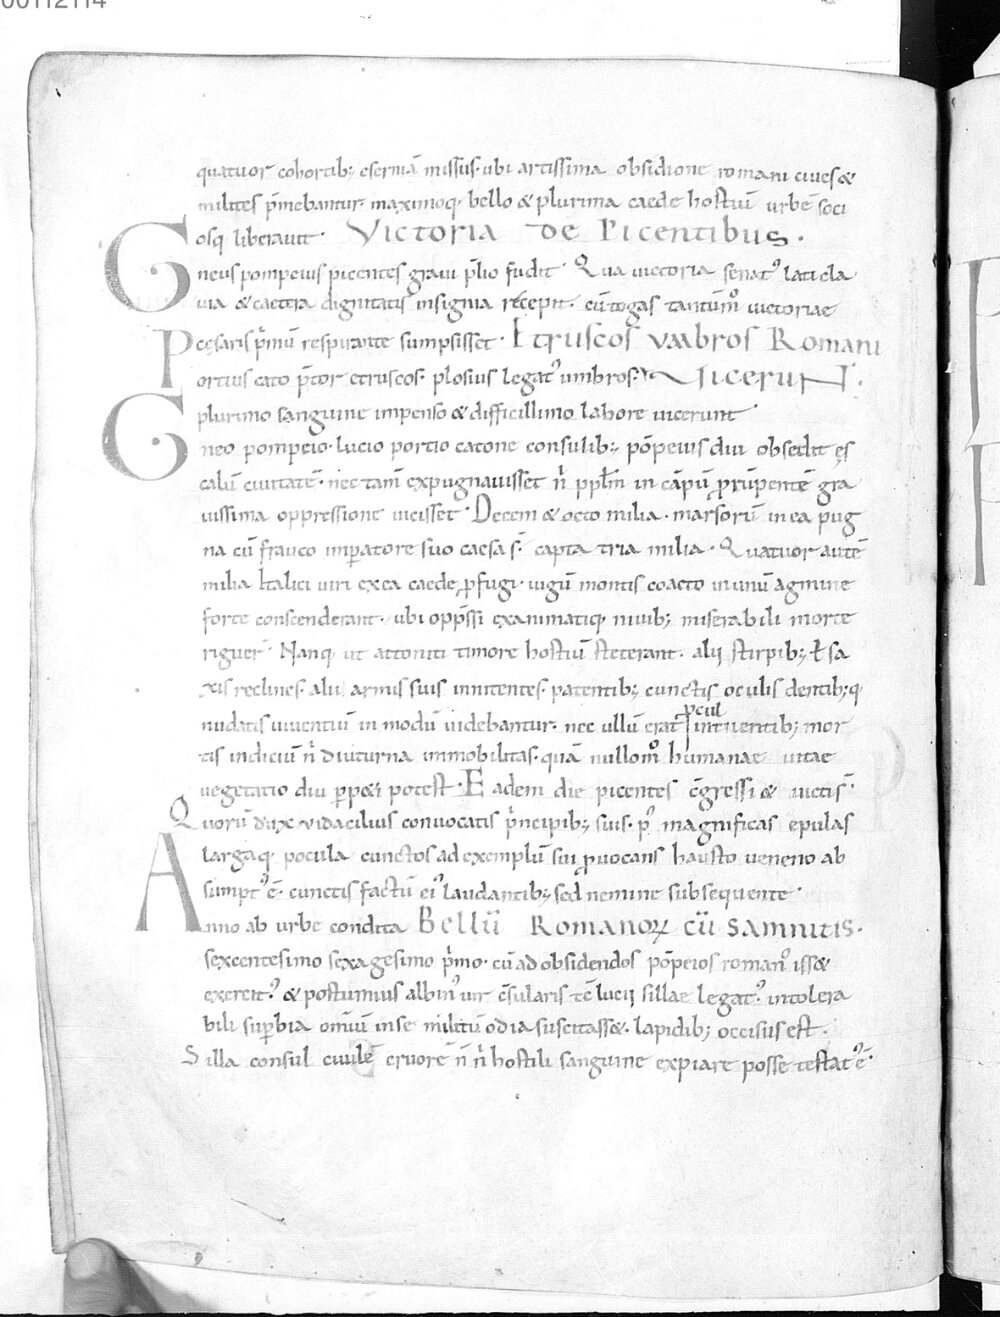 00112114
quatuor cohortib; eserniā missus· ubi artissima obsidione romani ciues &
milites p̄mebantur maximoq· bello & plurima caede hostiū urbē soci
osq liberauit· Victoria de Picentibus·
Gneus pompeius picentes graui p̄lio fudit· Qua uictoria senat᾽ laticla
uia & caetera dignitatis insignia recepit· cū togas tantūm᾽ uictoriae
cesaris p̄mū respirante sumpsisset· Etruscos vmbros Romani
Portius cato p̄tor etruscos· plosius legat᾽ umbros· Vicerunt·
plurimo sanguine impenso & difficillimo labore uicerunt·
Gneo pompeio· lucio portio catone consulib; pōpeius diu obsedit es
calū ciuitatē· nec tam̄ expugnauisset n̄ pp̄lm in cāpū prūpentē gra
uissima oppressione uicisset· Decem & octo milia· marsorū in ea pug
na cū frauco imperatore suo caesa s̄· capta tria milia· Quatuor autē
milia Italici uiri ex ea caede pfugi· iugū montis coacto in unū agmine
forte conscenderant· ubi opp̄ssi exanimatiq· niuib; miserabili morte
riguer̄· Nanq· ut attoniti timore hostiū steterant· alij stirpib; ł sa
xis reclines· alij armis suis innitentes· patentib; cunctis oculis dentib;q·
nudatis uiuentiū in modū uidebantur· nec ullū erat pcul intuentib; mor
tis indiciū n̄ diuturna immobilitas· quā nullom᾽ humanae uitae
uegetatio diu perpeti potest· Eadem die picentes c̄gressi & uicti s̄·
Quorū dux vidacilius conuocatis p̄ncipib; suis· p᾽ magnificas epulas
largaq· pocula cunctos ad exemplū sui prouocans hausto ueneno ab
sumpt᾽ ē· cunctis factū ei᾽ laudantib; sed nemine subsequente·
Anno ab urbe condita Bellū Romanoꝝ cū samnitis·
sexcentesimo sexagesimo p̄mo· cū ad obsidendos pōpeios roman᾽ iss&
exercit᾽· & postumius albin᾽ uir c̄sularis tc̄ lucij sillae legat᾽· intolera
bili superbia om̄iū in se militū odia suscitass&· lapidib; occisus est·
Silla consul ciuilē cruorē n̄ n̄ hostili sanguine expiare posse testat᾽ ē·